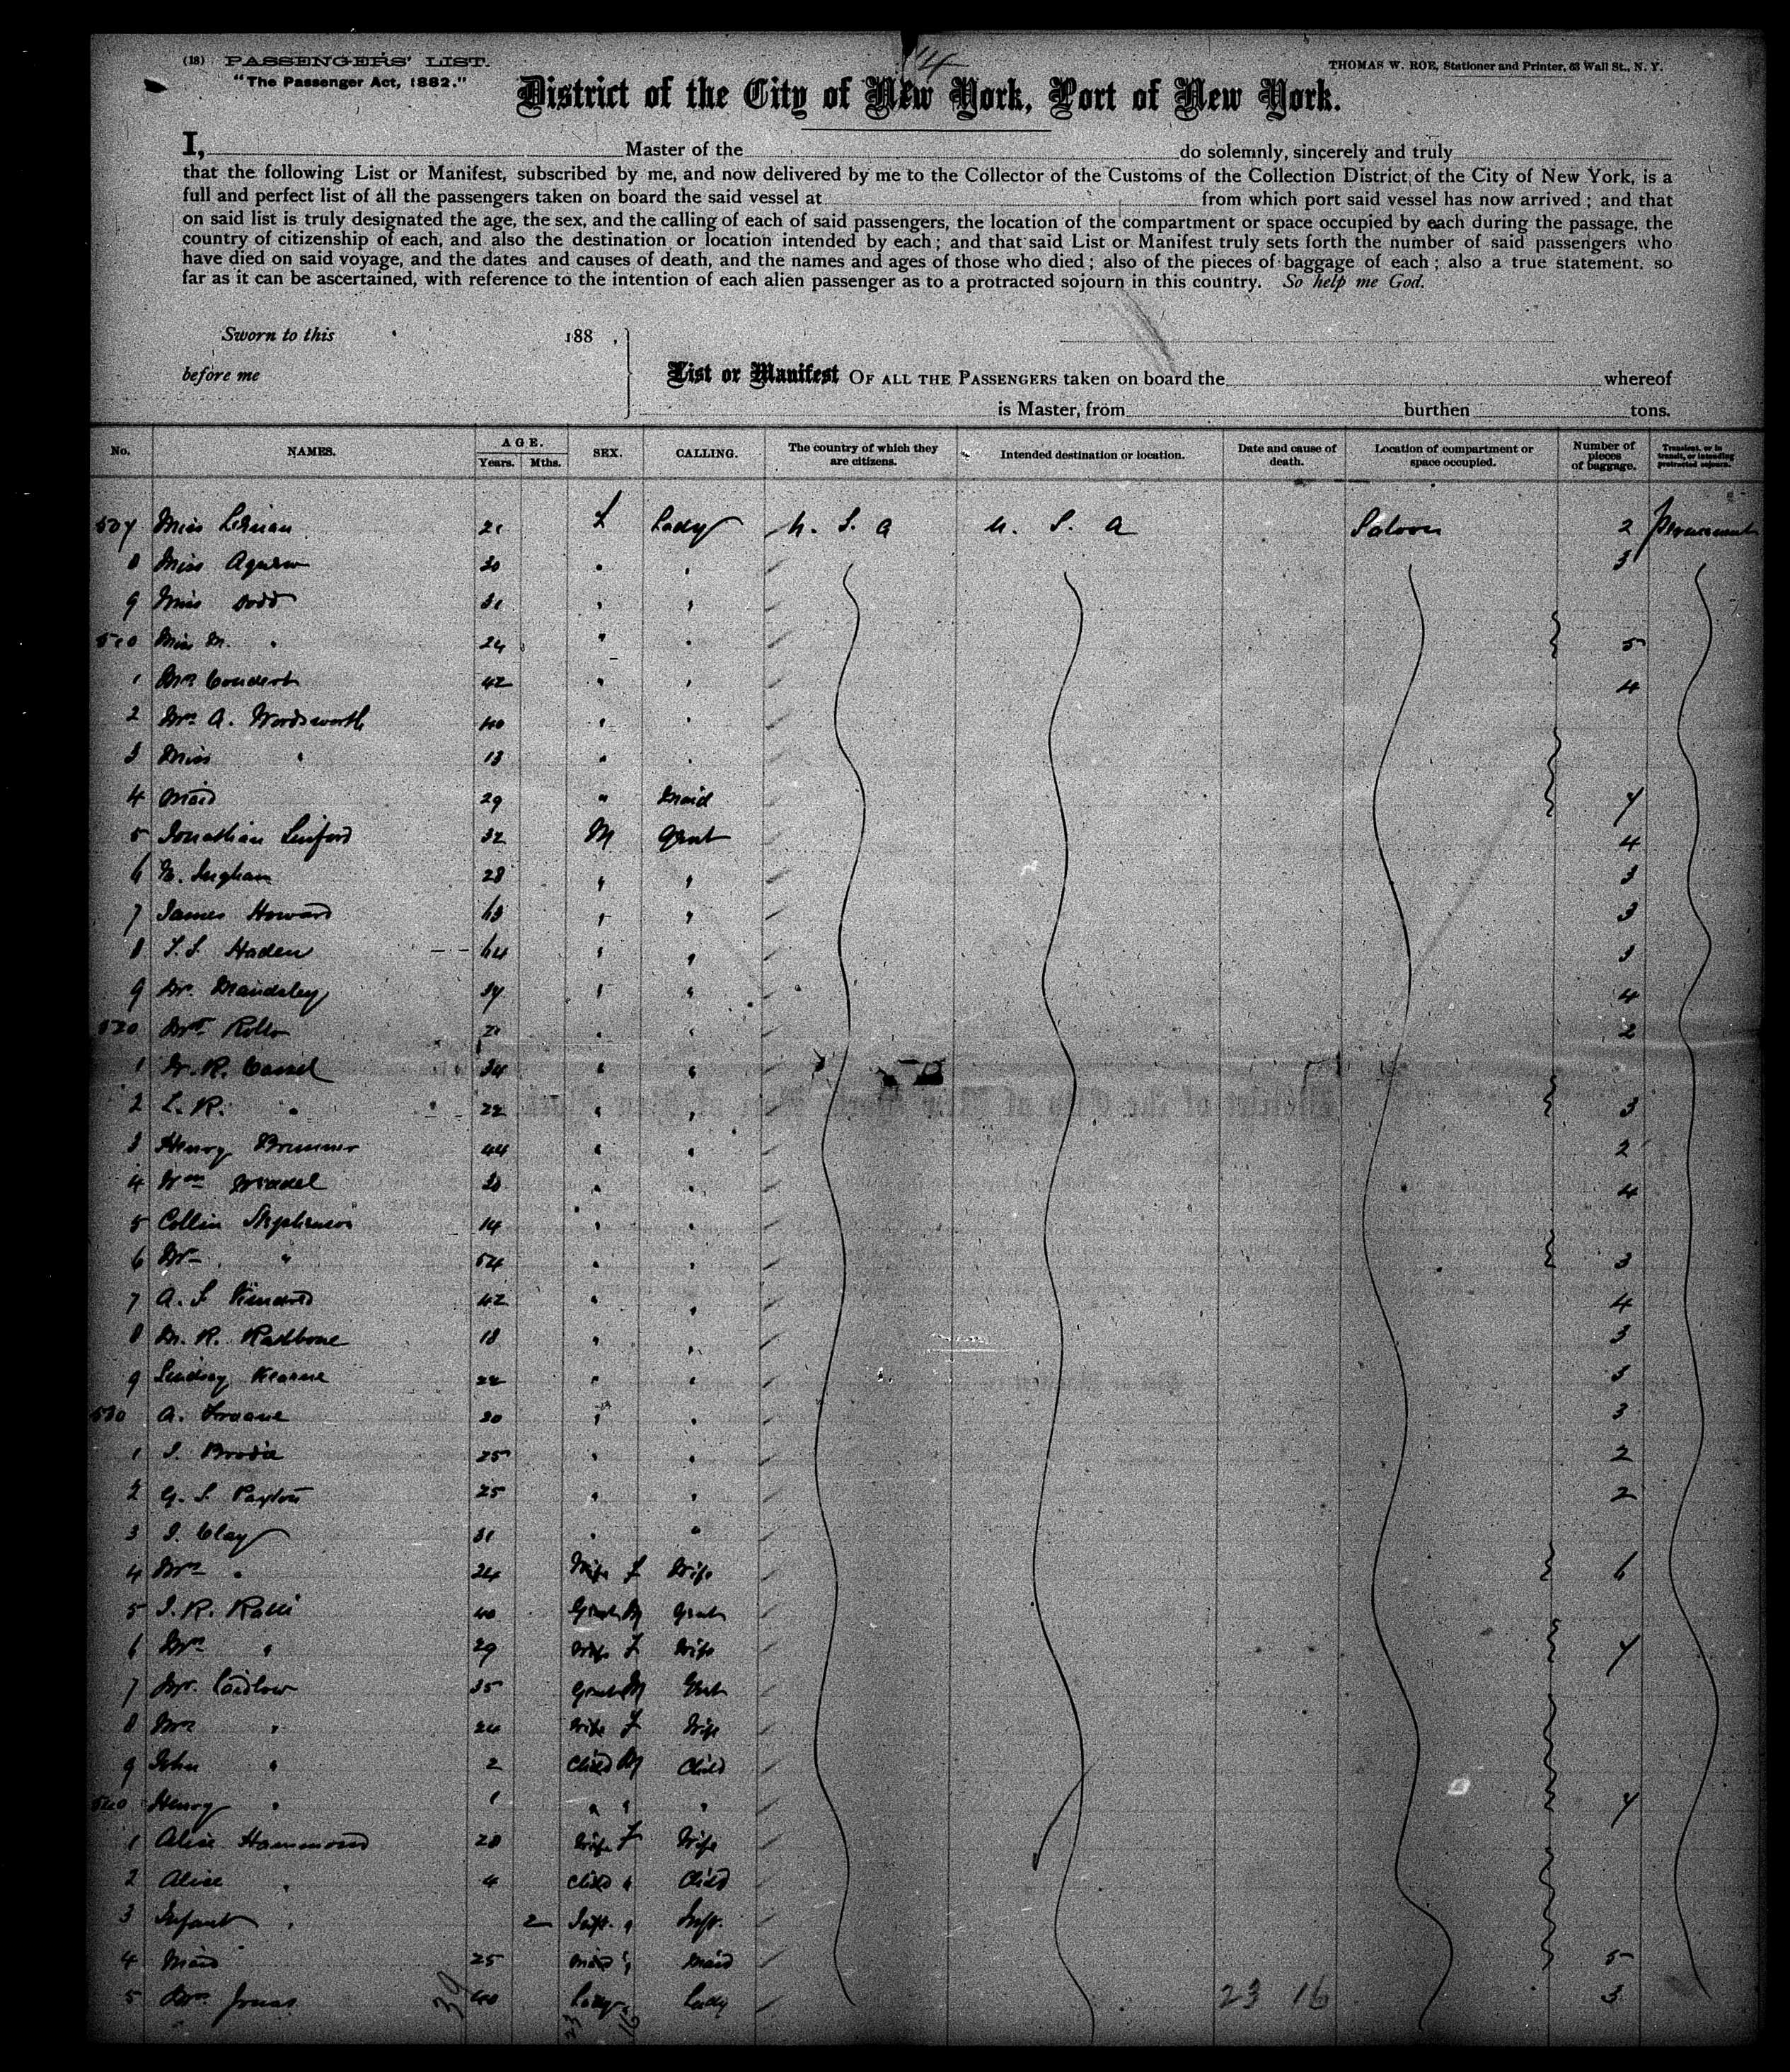 14
(18) PASSENGERS' LIST.
"The Passenger Act, 1882."
THOMAS W. ROE, Stationer and Printer, 53 Wall St., N. Y.
District of the City of New York, Port of New York.
I, Master of the do solemnly, sincerely and truly
that the following List or Manifest, subscribed by me, and now delivered by me to the Collector of the Customs of the Collection District of the City of New York, is a
full and perfect list of all the passengers taken on board the said vessel at from which port said vessel has now arrived; and that
on said list is truly designated the age, the sex, and the calling of each of said passengers, the location of the compartment or space occupied by each during the passage, the
country of citizenship of each, and also the destination or location intended by each; and that said List or Manifest truly sets forth the number of said passengers who
have died on said voyage, and the dates and causes of death, and the names and ages of those who died; also of the pieces of baggage of each; also a true statement, so
far as it can be ascertained, with reference to the intention of each alien passenger as to a protracted sojourn in this country. So help me God.
Sworn to this 188 ,
before me
List or Manifest OF ALL THE PASSENGERS taken on board the whereof
is Master, from burthen tons.
No. NAMES. AGE. Years. Mths. SEX. CALLING. The country of which they are citizens. Intended destination or location. Date and cause of death. Location of compartment or space occupied. Number of pieces of baggage. Transient, or in transit, or intending protracted sojourn.
507 Miss 21 F Lady U. S. A U. S. A Saloon 2
8 Miss Agnew 30 " " 3
9 Miss Dodd 31 " "
510 Miss M. " 24 " " 5
1 Mrs Coudert 42 " " 4
2 Mrs A. Wordsworth 40 " "
3 Miss " 13 " "
4 Maid 29 " Maid 7
5 Jonathan Linford 32 M Gent 4
6 Ingham 28 " " 3
7 James Howard 63 " " 3
8 Haden 64 " " 3
9 Dr. Maudsley " " 4
520 Mr Rollo 21 " " 2
1 R. Cassel 34 " "
2 L. R. " 22 " " 3
3 Henry Brunner 44 " " 2
4 Wm 30 " " 4
5 Collin Stephenson 14 " "
6 Mr " 54 " " 3
7 A. Kindred 42 " " 4
8 R. Rathbone 18 " " 3
9 Lindsay Kearne 22 " " 3
530 A. 30 " " 3
1 Brodie 25 " " 2
2 G. S. Payton 25 " " 2
3 J. Clay 31 " "
4 Mrs " 24 Wife F Wife 6
5 J. R. Ralli 40 Gent M Gent
6 Mrs " 29 Wife F Wife 7
7 Mr. Laidlow 35 Gent M Gent
8 Mrs " 24 Wife F Wife
9 John " 2 Child M Child
540 Henry " 1 " " " 7
1 Alice Hammond 28 Wife F Wife
2 Alice " 4 Child " Child
3 Infant " 2 Inft. " Inft.
4 Maid 25 Maid " Maid 5
5 Mrs Jonas 40 Lady " Lady 3
39 23 16 23 16